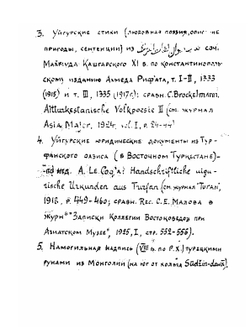 3. Уйгурские стихи (любовная поэзия, описание
природы, сентенции) из соч.
Махмуда Кашгарского XI в. по константинополь-
скому изданию Ахмеда Риф'ата, т. I-II, 1333
(1915) и т. III, 1335 (1917г.): сравн. C. Brockelmann.
Altturkestanische Volkpoesie II (см. журнал
Asia Major, 1924, vol. I, p. 24-44
4. Уйгурские юридические документы из Тур-
фанского оазиса (в Восточном Туркестане)-
-по изд. A. Le Coq'a: Handschriftliche uigu-
rische Urkunden aus Turfan (см. журнал "Turan",
1918, p. 449-460; сравн. Rec. С.Е. Малова в
журн. "Записки Коллегии Востоковедов при
Азиатском Музее", 1925, I, стр. 552-556).
5. Намогильная надпись (VIII в. по Р.Х.) турецкими
рунами из Монголии (на юг от холма Südžin-dawa).